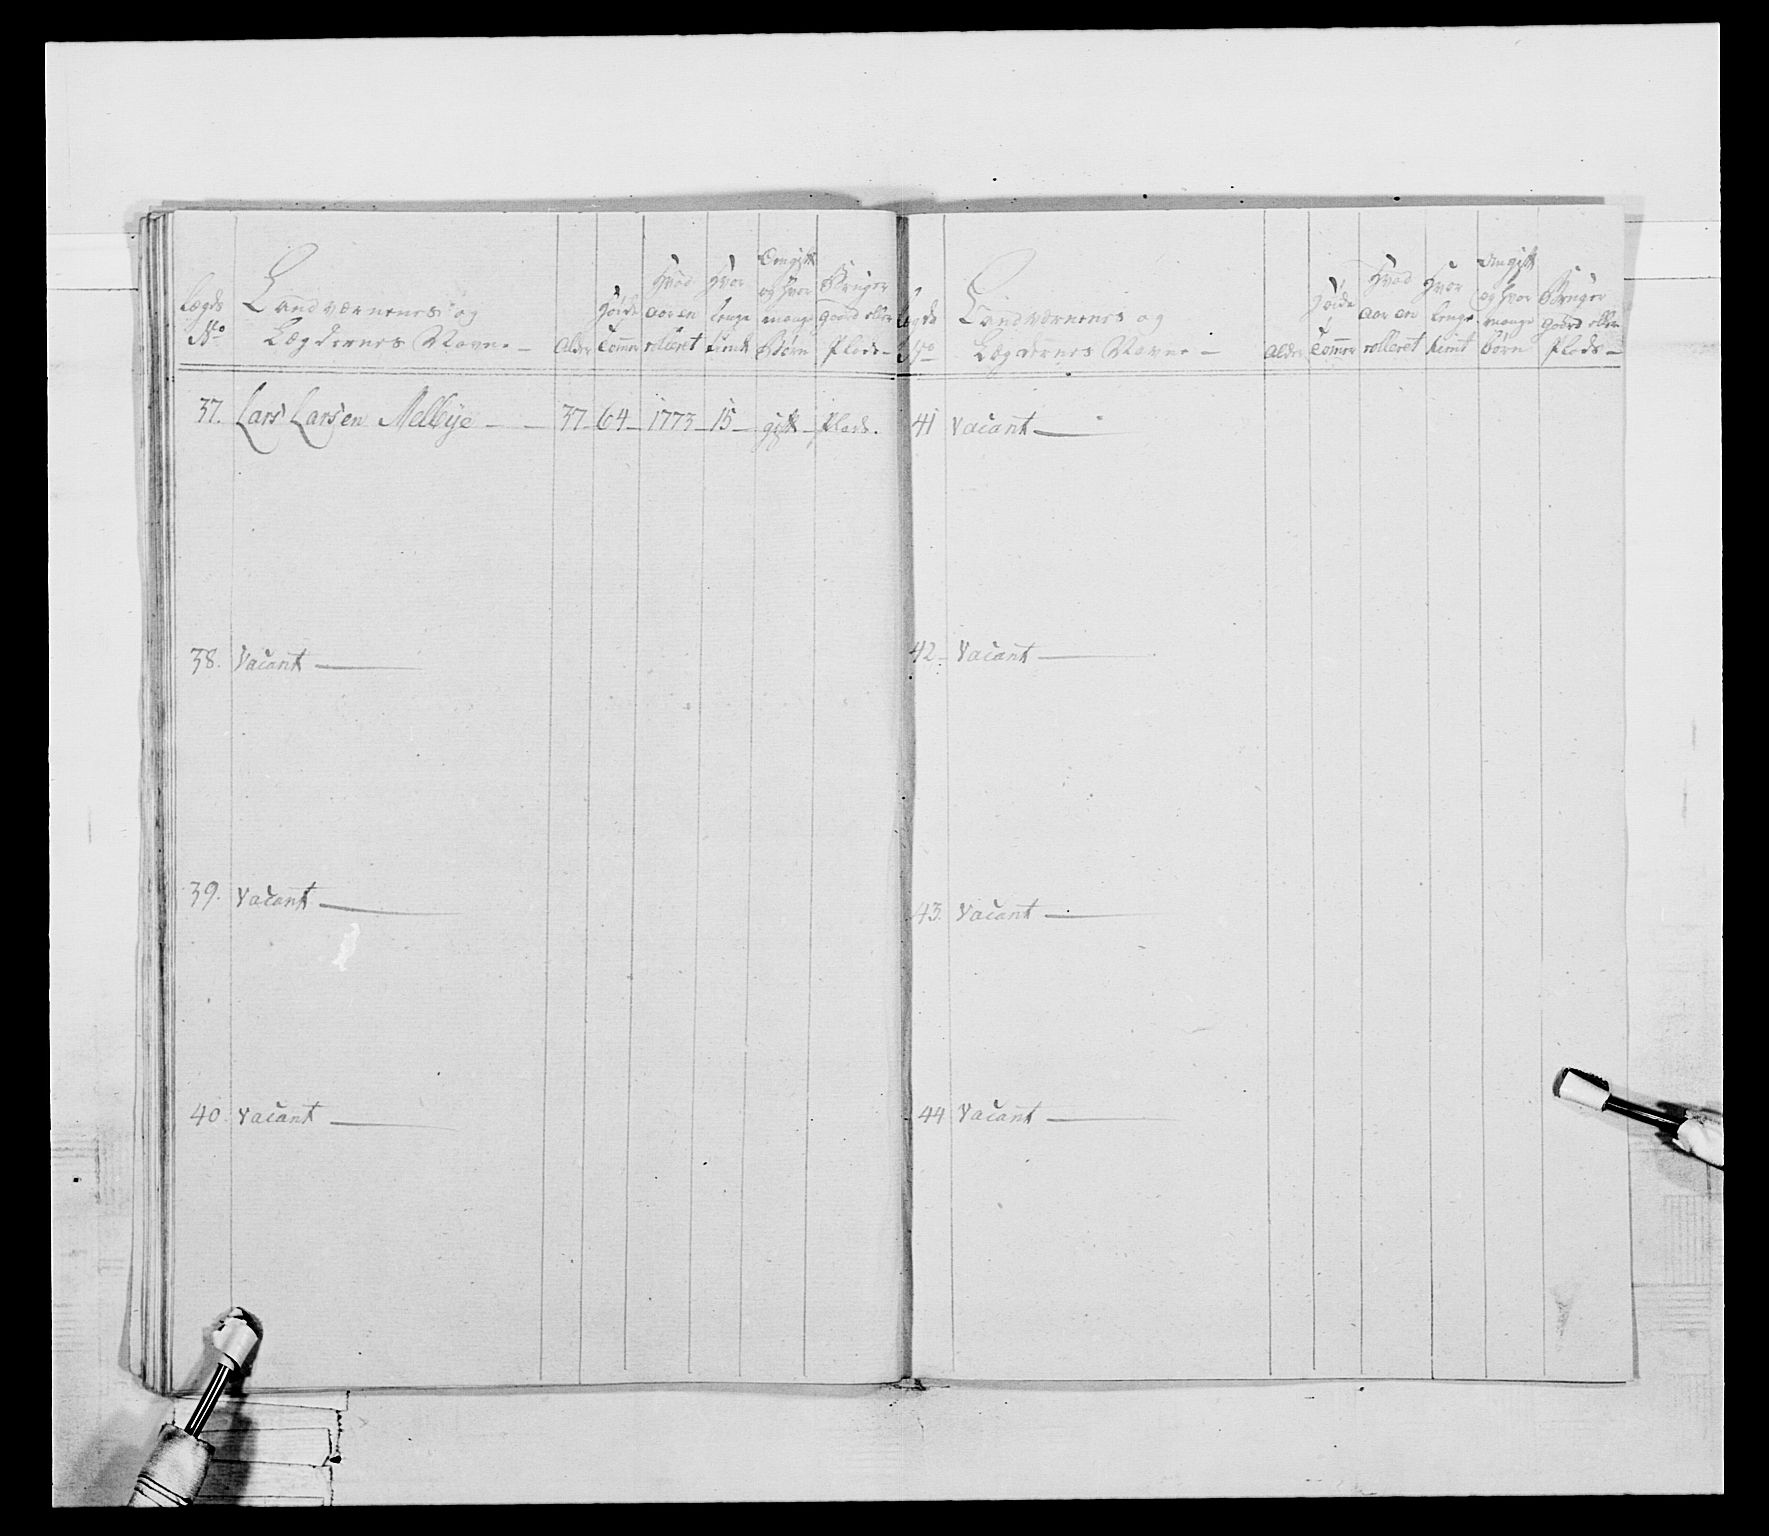 Lægds No
Landværnenes og
Lægdernes Navne
Alder
Høide
Tommer
Hvad
aar en
rolleret
Hvor
lenge
tient
Om gift
og hvor
mange
Børn
Bruger
Gaard eller
Plads
37. Lars Larsen Melbye 37 64 1773 15 gift Plads.
38. Vacant
39. Vacant
40. Vacant
Lægds No
Landværnenes og
Lægdernes Navne
Alder
Høide
Tommer
Hvad
aar en
rolleret
Hvor
lenge
tient
Om gift
og hvor
mange
Børn
Bruger
Gaard eller
Plads
41 Vacant
42 Vacant
43. Vacant
44 Vacant